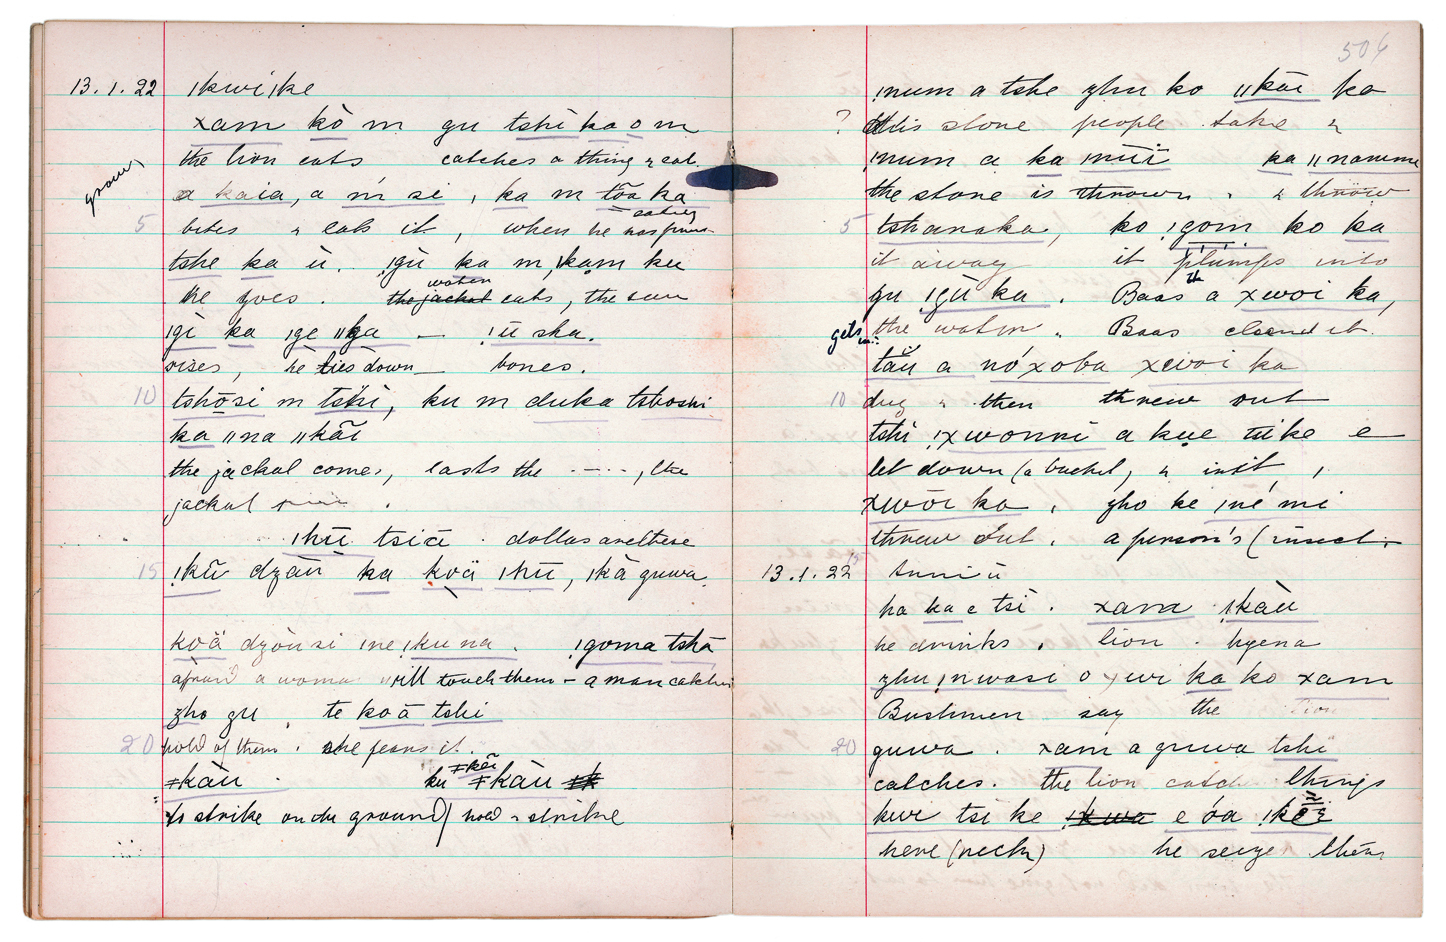 13.1.22 ǀkwiǀke
xam kò m gu tshì ka o m
the lion eats catches a thing & eat.
growls
a kaia, a ḿ si, ka m tōa ka
5 bites & eats it, when he has finis- eating
tshe ka ù. ǃgù ka m, ǀkam ku
he goes. the jackal water eats, the sun
ǀgì ka ǀge ǁka — ǃū ska.
rises, he lies down — bones.
10 tshōsi m tshì, ku m duka tshoshi
ka ǁna ǁkāī
the jackal comes, casts the ----, the
jackal
ǀhū tsiā. dollas aseltese
15 ǃkū dzàù ka koä ǀhū, ǀkā guwa.
koä dzòu si ǀne ǃku na. ǃgoma tshā
afraid a woman will touch them – a man catches
zho gu, te koā tshi
20 hold of them. she fears it.
ǂkàu. ku ǂkàu ǂk
ǂkèi
to strike on the ground / hold & strike
506
ǃnum a tshe zhu ko ǁkāī ka
? this stone people take &
ǃnum a ka ǀnīī ka ǁnamma
the stone is thrown. & throw
5 tshanaka, ko ǃgom ko ka
it away it plumps into
gu ǃgù ka. Baas a xwoi ka,
gets in: the water. Baas cleaned it.
tāu a nóxoba xwoi ka
10 dug & then threw out
tshi ǃxwonni a kue tiike e
let down (a bucket) & in it,
xwōi ka. zho ke ǀné mi
threw out. a person's (insect.
13.1.22 Anniū
ha ka e tsì. xam ǃkàu
he drinks. lion. hyena
zhu ǀnwasi o xwi ka ko xam
Bushmen say the lion
20 guwa. xam a guwa tshi
catches. the lion catches things
kwi tsi ke ǃxwa e óa ǃkèi
here (neck) he seize them